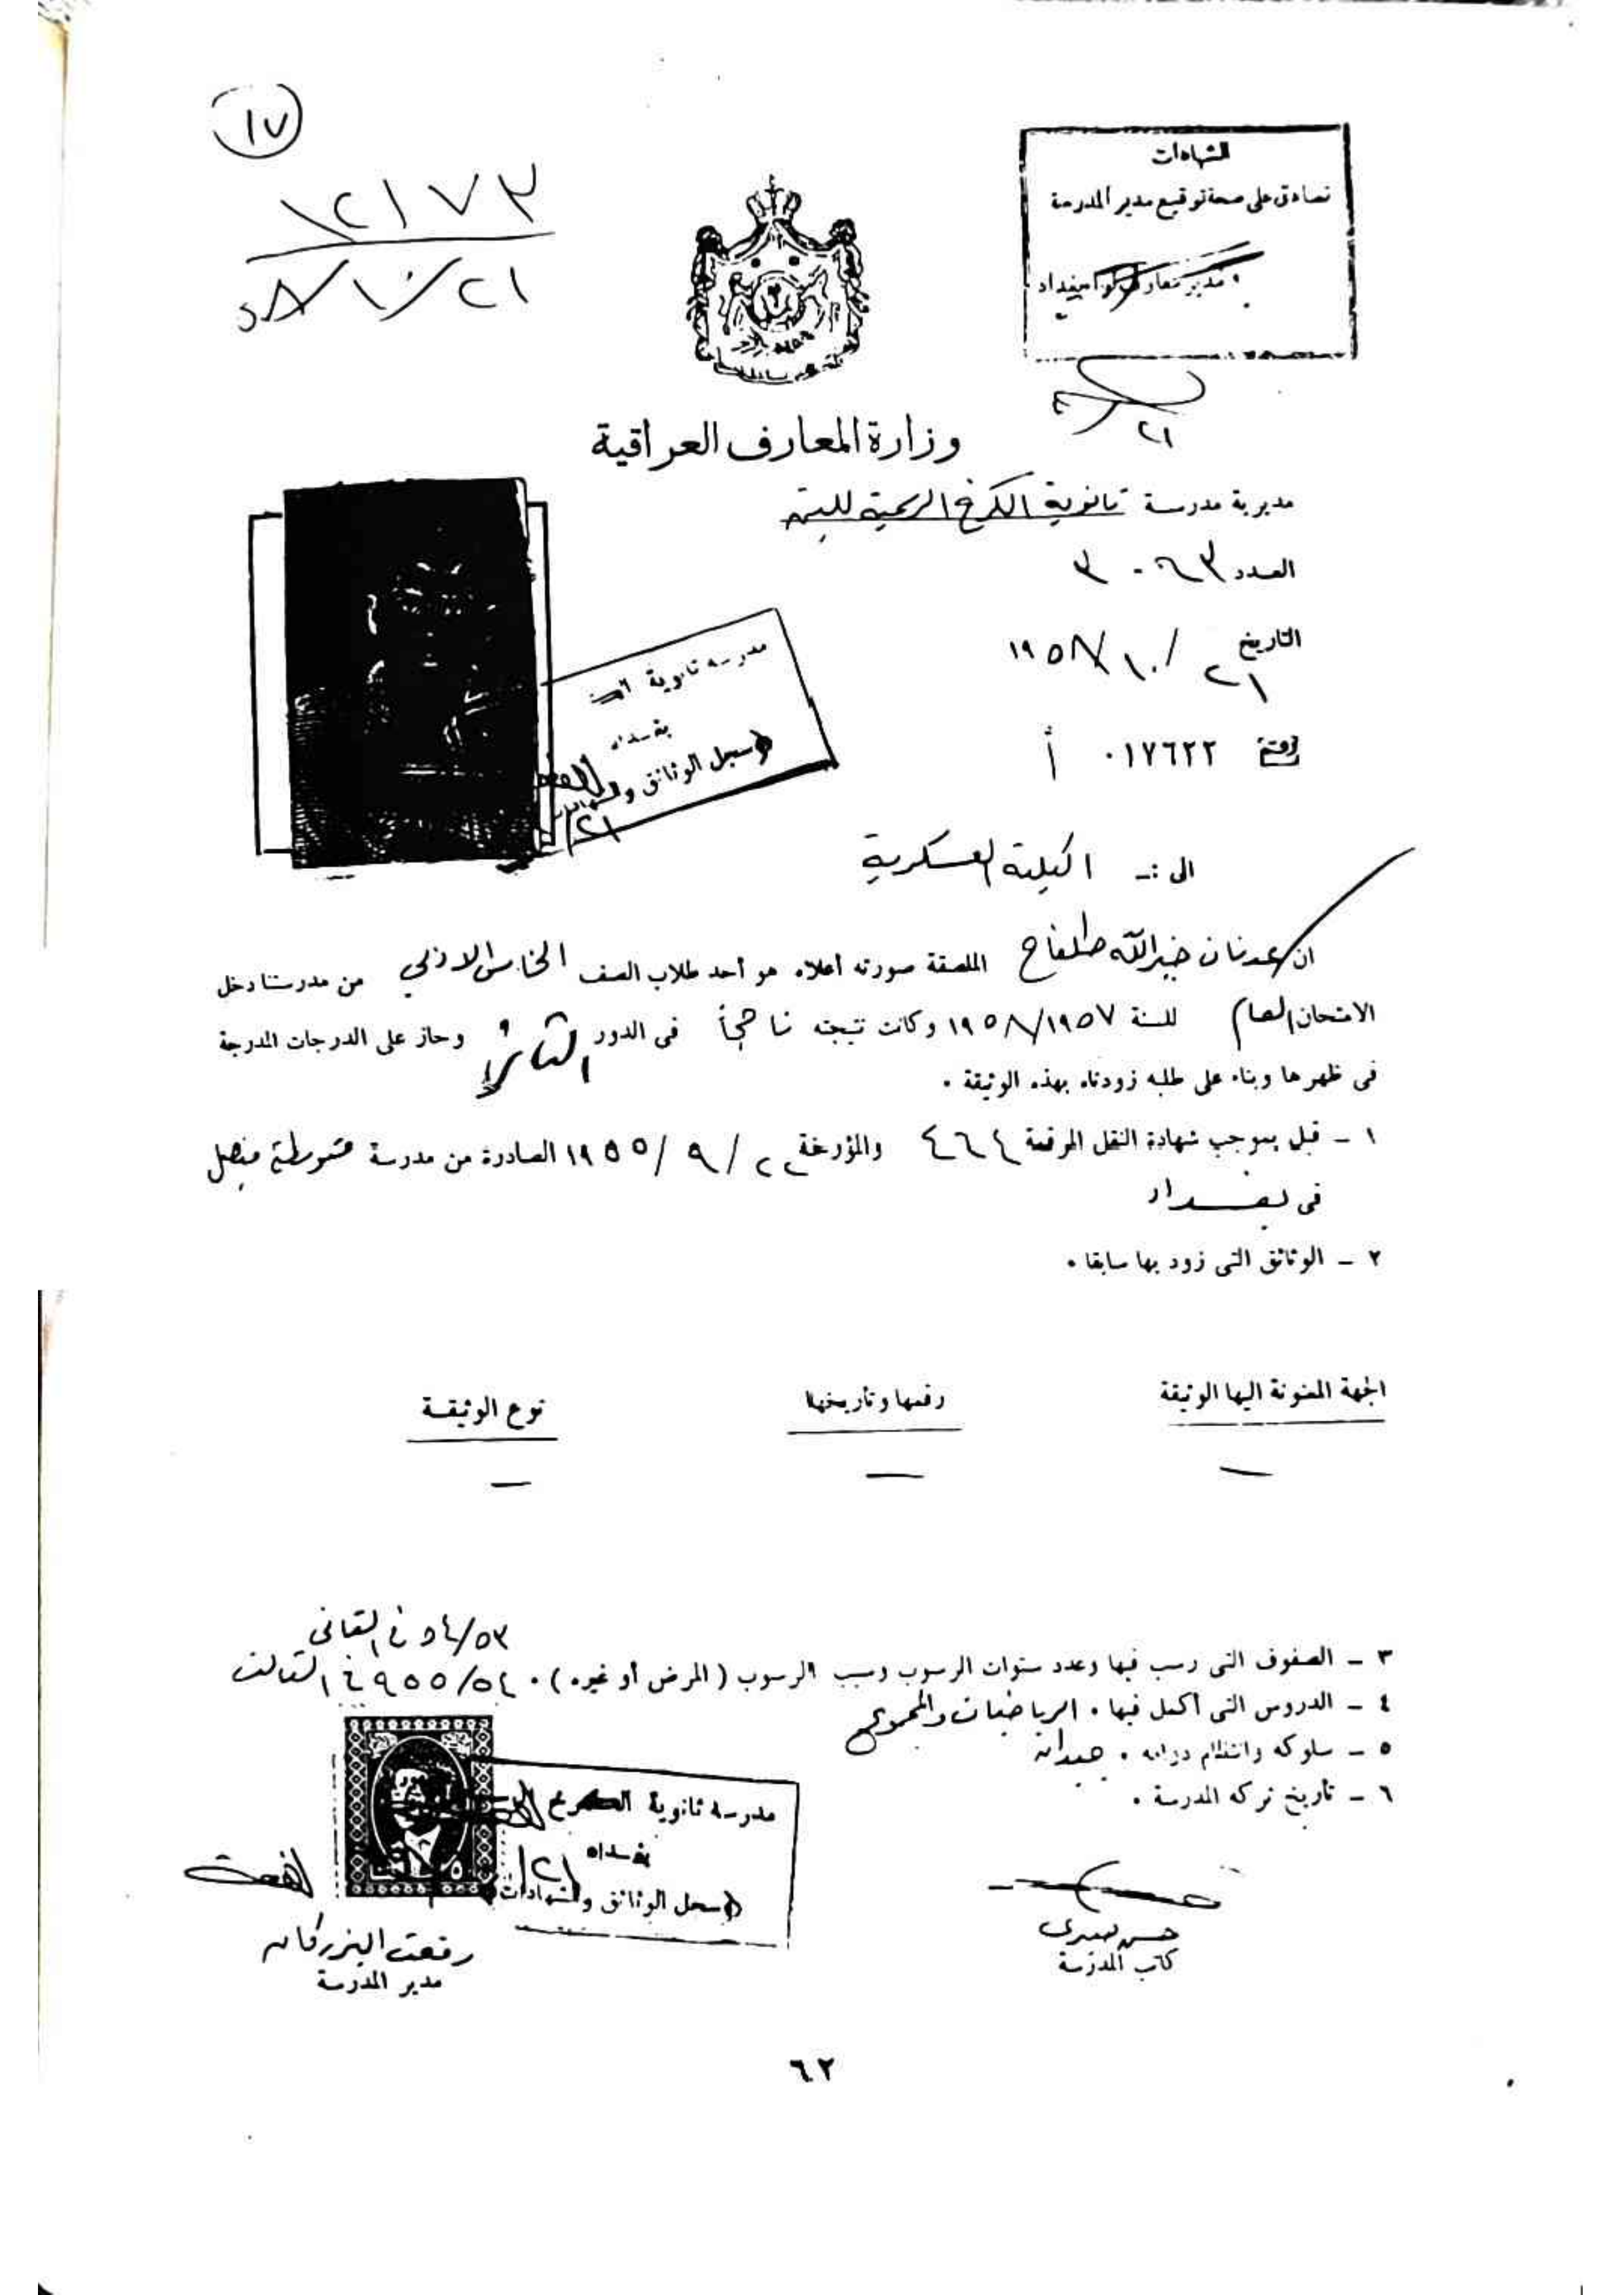 ١٧
١٢١٧٣
٢١/١٠/٥٨
الشهادات
نصادق على صحة توقيع مدير المدرسة
مدير معارف لواء بغداد
٢١
وزارة المعارف العراقية
مديرية مدرسة ثانوية الكرخ الرسمية للبنين
العدد ٣٠٦٣
التاريخ ٢١/١٠/١٩٥٨
رقم ٠١٧٦٢٢ أ
مدرسة ثانوية
بغداد
سجل الوثائق والشهادات
٢١
الى :ـ الكلية العسكرية
ان عدنان خيرالله طلفاح الملصقة صورته أعلاه هو أحد طلاب الصف الخامس الادبي من مدرستنا دخل
الامتحان العام للسنة ١٩٥٧/١٩٥٨ وكانت نتيجته ناجحاً في الدور الثاني وحاز على الدرجات المدرجة
في ظهرها وبناء على طلبه زودناه بهذه الوثيقة .
١ ـ قبل بموجب شهادة النقل المرقمة ٤٦٤ والمؤرخة ٢٢/٩/١٩٥٥ الصادرة من مدرسة متوسطة فيصل
في بغداد
٢ ـ الوثائق التي زود بها سابقا .
الجهة المعنونة اليها الوثيقة رقمها وتأريخها نوع الوثيقة
— — —
٥٤/٥٣ في الثاني
٣ ـ الصفوف التي رسب فيها وعدد سنوات الرسوب وسبب الرسوب ( المرض أو غيره ) . ٩٥٥/٥٤ في الثالث
٤ ـ الدروس التي أكمل فيها . الرياضيات والمجموع
٥ ـ سلوكه وانتظام دوامه . جيدان
٦ ـ تأريخ تركه المدرسة .
مدرسة ثانوية الكرخ
بغداد
سجل الوثائق والشهادات
٢١
حسن صبري
كاتب المدرسة
رفعت البزركان
مدير المدرسة
٦٢